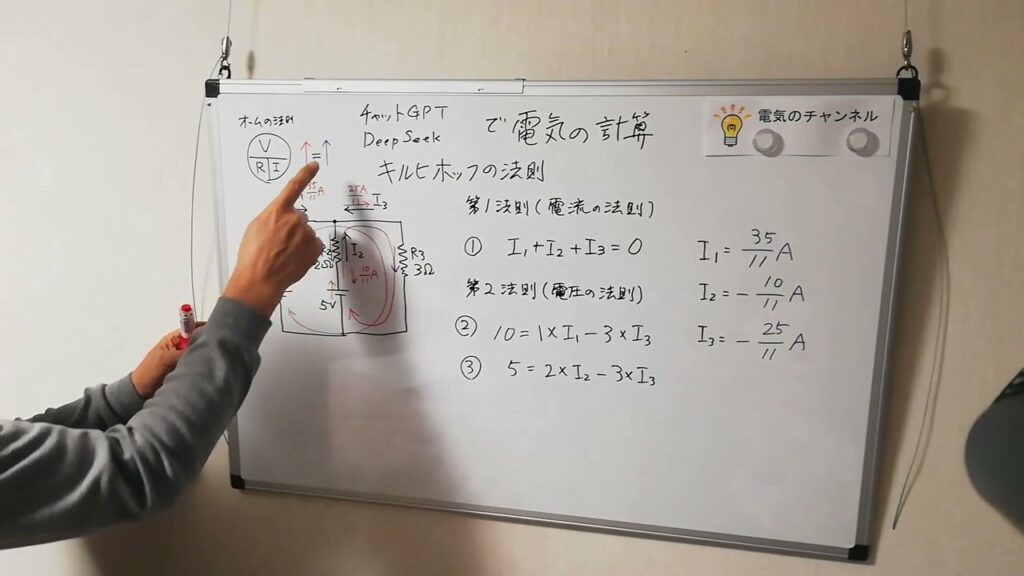 オームの法則
V
R I
=
チャットGPT
DeepSeek
で電気の計算
電気のチャンネル
キルヒホッフの法則
35/11 A
25/11 A I3
I2
10/11 A
R3
3Ω
2Ω
5V
第1法則(電流の法則)
① I1+I2+I3=0
第2法則(電圧の法則)
② 10=1×I1-3×I3
③ 5=2×I2-3×I3
I1=35/11 A
I2=-10/11 A
I3=-25/11 A